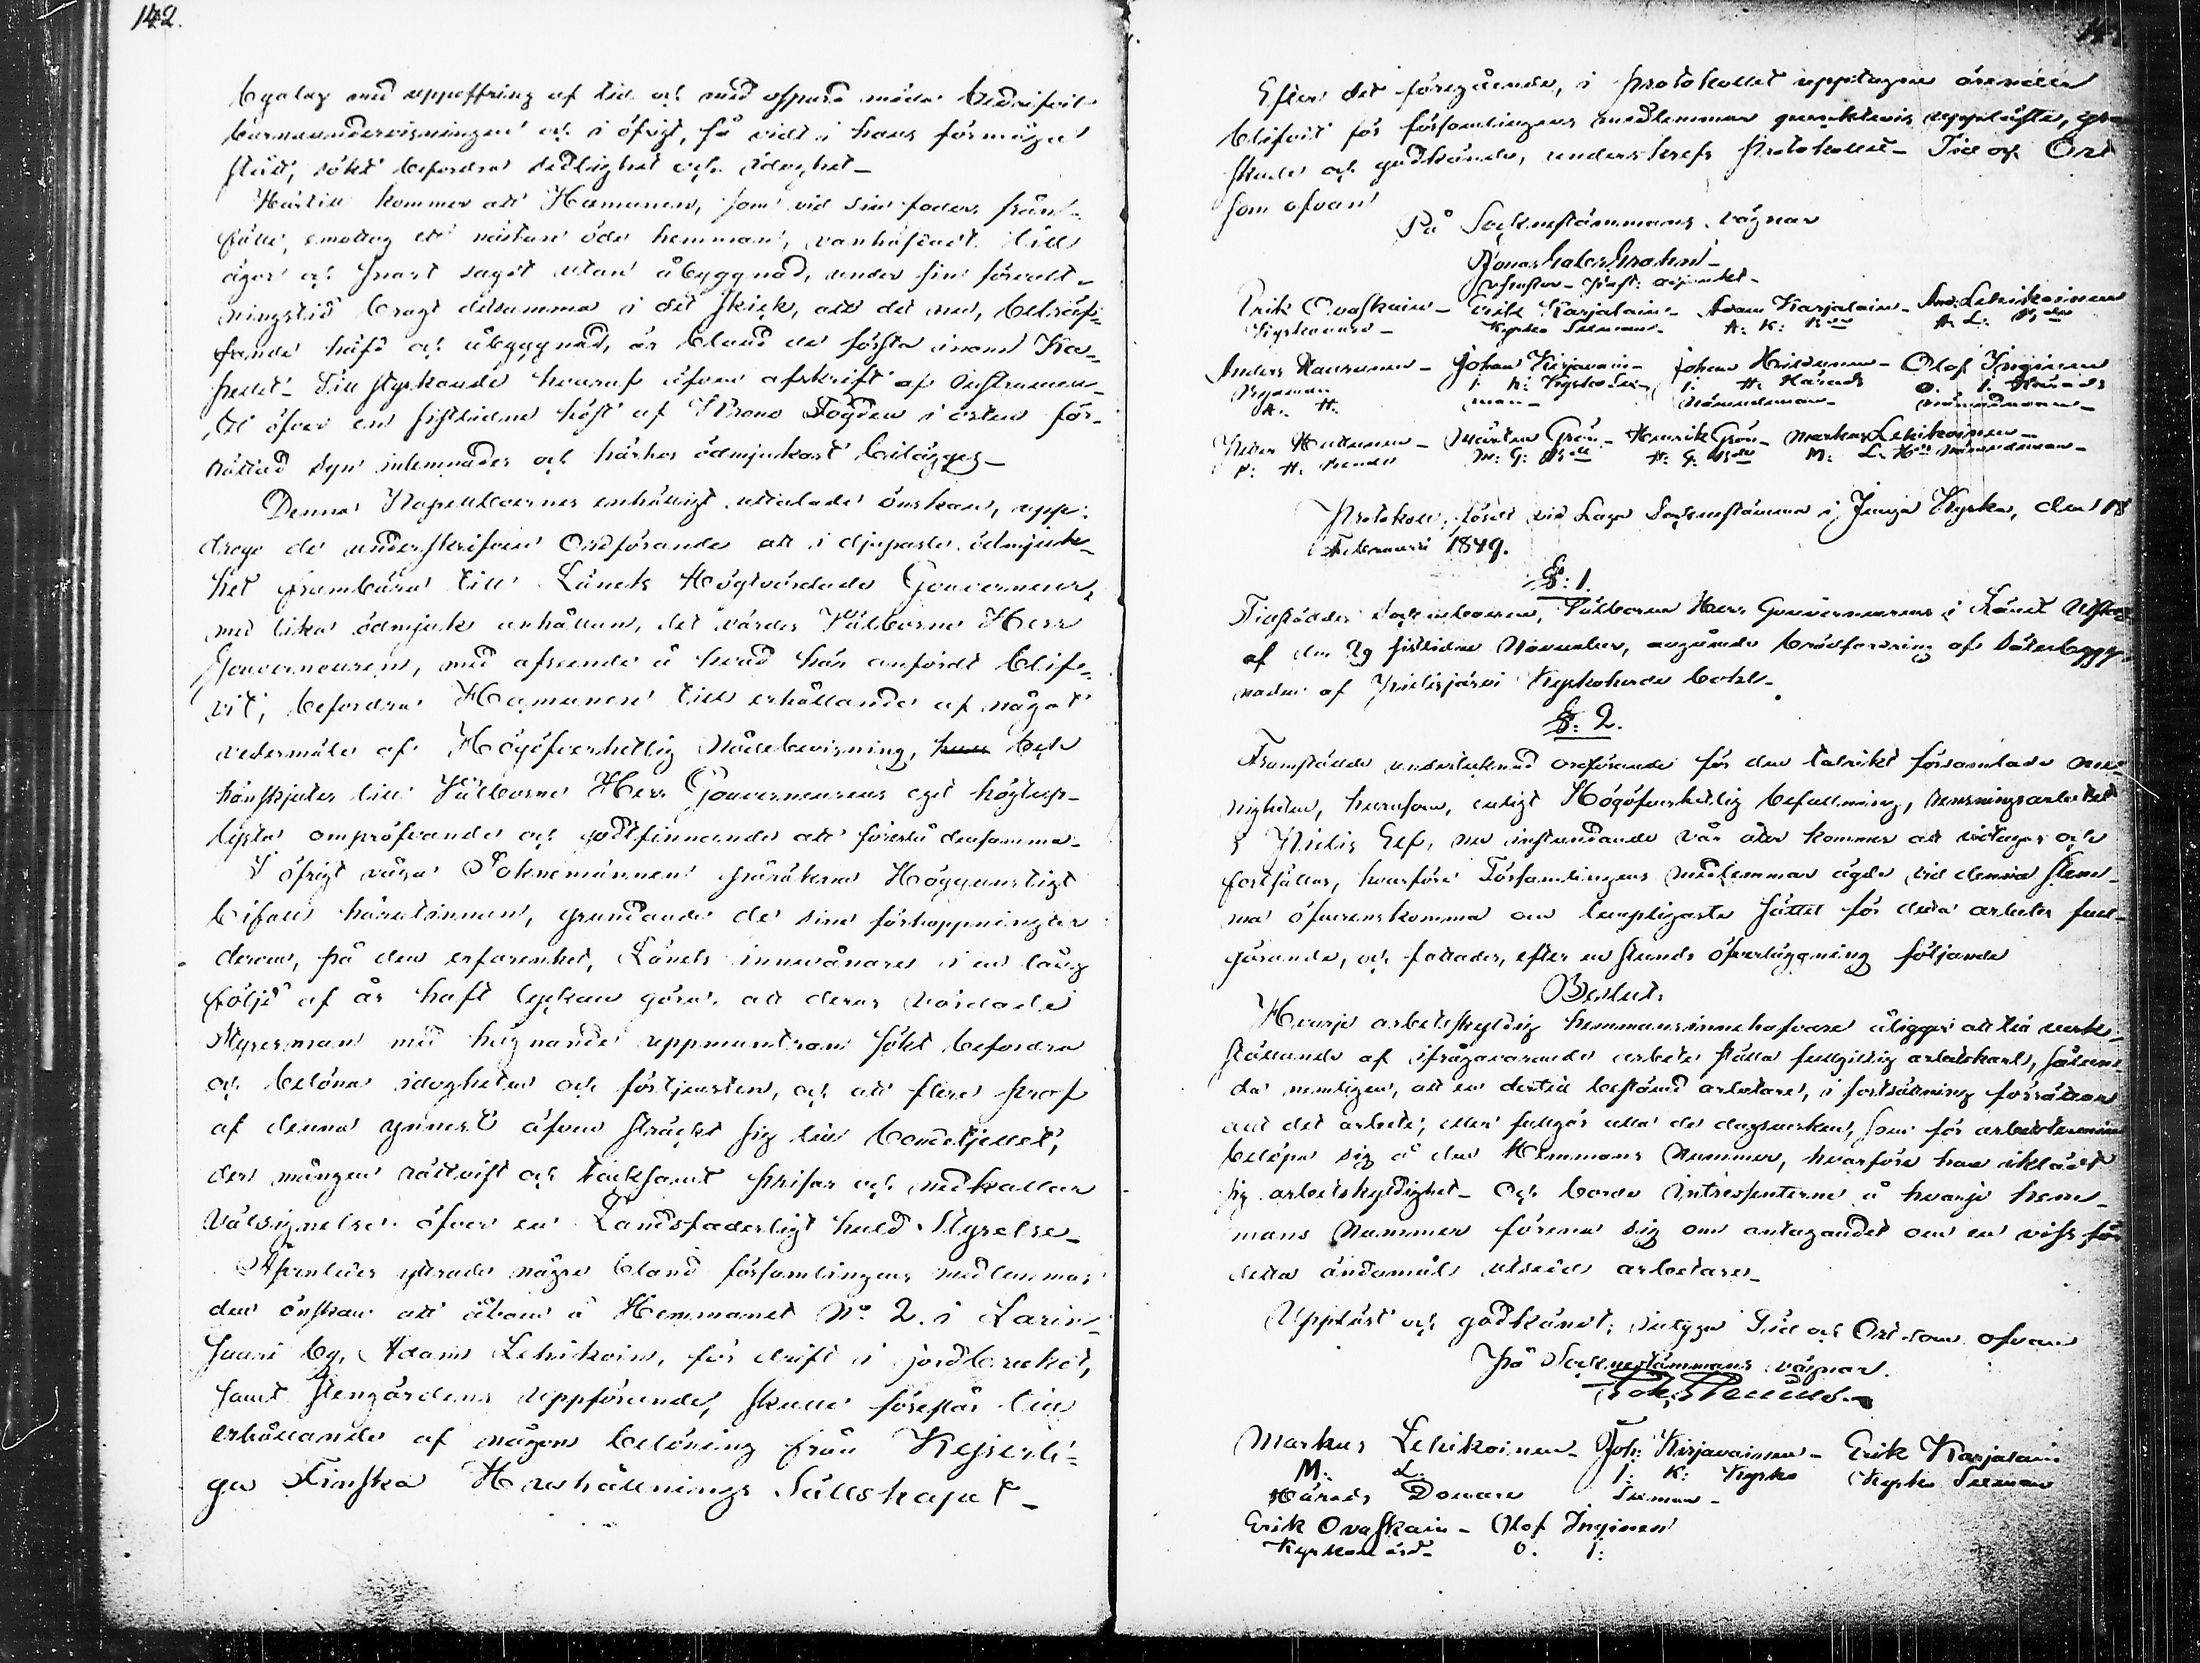 142.
byalag med uppoffring af tid och med ospard möda bedrifvit
barnaundervisningen och i öfrigt, så vidt i hans förmåga
stått, sökt befordra sedlighet och idoghet_
Härtill kommer att Hämunen, som vid sin faders frän-
fälle, emottog ett nästan öde hemman, vanhäfdat till
ägor och snart sagdt utan åbyggnad, under sin förvalt-
ningstid bragt detsamma i det skick, att det nu, beträf-
fande häfd och åbyggnad, är bland de första inom Ka-
pellet. Till styrkande hvaraf äfven afskrift af Instrumen-
tet öfver en sistlidne höst af Krono Fogden i orten för-
rättad Syn inlemnades och härhos ödmjukast bilägges_
Denna Kapellboernes enhälligt uttalade önskan, upp-
drogo de underskrifven Ordförande att i djupaste ödmjuk-
het frambära till Länets Högtvördade Gouverneur,
med lika ödmjuk anhållan, det värdes Välborne Herr
Gouverneuren, med afseende å hvad här anfördt blif-
vit, befordra Hämunen till erhållande af något
vedermäle af Högöfverhetlig Nådebevisning,
hänskjutes till Välborne Herr Gouverneurens eget högtup-
lysta ompröfvande och godtfinnande att föreslå densamma_
I öfrigt våga Soknemännen påräkna Höggunstigt
bifall härutinnan, grundande de sina förhoppningar
derom, på den erfarenhet, Länets innevånare i en lång
följd af år haft lyckan göra, att deras vördade
Styresman med hägnande uppmuntran sökt befordra
och belöna idogheten och förtjensten, och att flere prof
af denna ynnest äfven sträckt sig till bondetjellet,
der mången rättvist och tacksamt prisar och nedkallar
Välsignelse öfver en Landsfaderligt huld Styrelse_
Äfvenledes yttrade några bland församlingens medlemmar
den önskan att åboen å Hemmanet No 2. i Larin-
saari by, Adam Lehikoin, för drift i jordbruket,
samt stengärdens uppförande, skulle föreslås till
erhållande af någon belöning från Kejserli-
ga Finska Hushållnings Sällskapet_
Efter det föregående, i Protokollet upptagne ärenden
blifvit för församlingens medlemmar punktevis uppläste, gran-
skade och godkände, underskrefs Protokollet_ Tid och Ort
som ofvan
På Socknestämmans vägnar
Erik Ovaskain_ Erik Karjalain_ Adam Karjalain_ And: Lehikoinen
Kyrkovärd_ Kyrko Sexman_ A: K:
Anders Johan Kirjavain_ Johan Olof Inginen
A. H. I: K: Kyrko Sex- I: H: Härads O. I. Härads
man_ Nämndeman_ Nämndeman_
Peter Mårten Grön_ Henrik Grön_ Markus Lehikoinen_
P: H: M: G: H: G: M: L: Nämndeman_
Protokoll, fördt vid Laga Socknestämma i Jungo Kyrka, den 18
Februarii 1849.
§: 1.
Tillstädde Socknebon, Välborne Herr Gouverneurens i Länet
af den 29 sistlidne November, angående af Säterbygg-
naden af Pielisjärvi Kyrkoherde bohl_
§: 2.
Framstälde undertecknad ordförande för den talrikt församlade me-
nigheten, hurusom, enligt Högöfverhetlig befallning, rensningsarbetet
i Pielis Elf, nu instundande vår åter kommer att vidtagas och
fortsättas, hvarföre Församlingens medlemmar ägde vid denna stäm-
ma öfverenskomma om lämpligaste sättet för detta arbetes full-
görande, och fattades, efter en stunds öfverläggning följande
Beslut:
Hvarje arbetsskyldig hemmansinnehafvare åligger att till verk-
ställande af ifrågavarande arbete ställa fullgiltig arbetskarl, sålun-
da nemligen, att en dertill bestämd arbetare, i fortsättning förrättar
allt det arbete, eller fullgör alla de dagsverken, som för arbetstermin
belöpa sig å den Hemmans Nummer, hvarföre han iklädt
sig arbetsskyldighet_ Och borde Intressenterne å hvarje hem-
mans Nummer förena sig om antagandet om en viss för
detta ändamål utsedd arbetare_
Uppläst och godkändt; intyga Tid och Ort som ofvan
På Socknestämmans vägnar.
Markus Lehikoinen_ Joh: Kirjavainen_ Erik Karjalain
M: L. I: K: Kyrko Kyrko Sexman
Härads Domare Sexman_
Erik Ovaskain_ Olof Inginen
Kyrkovärd_ O. I: